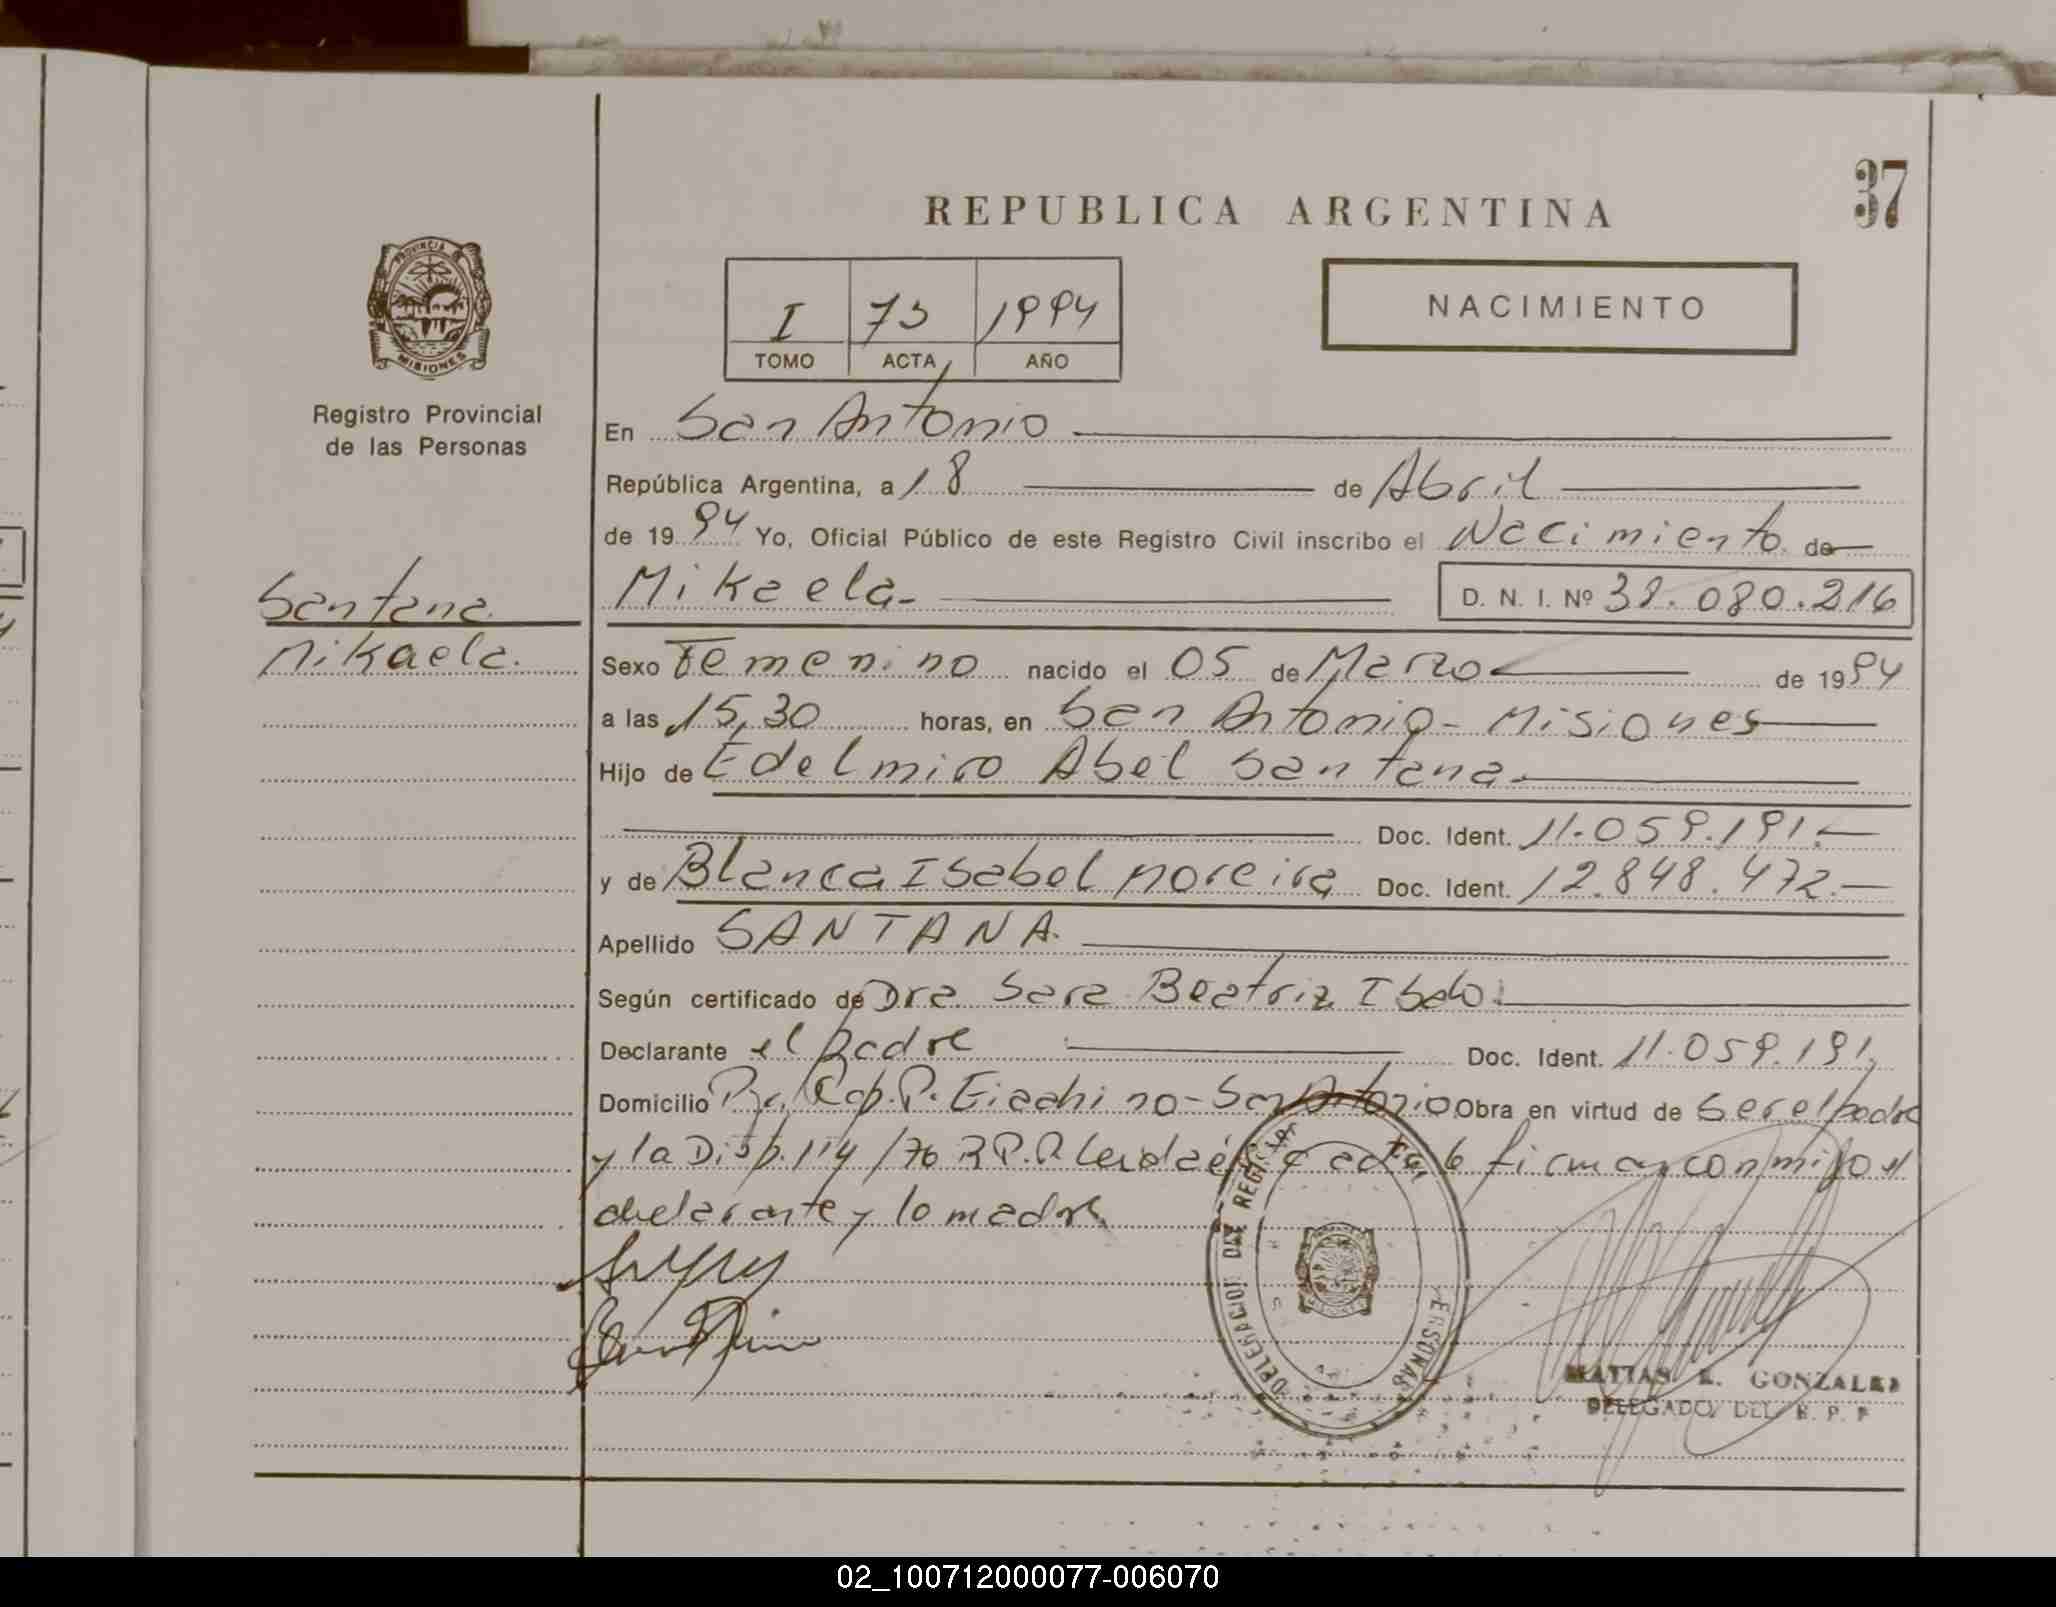 37
REPUBLICA ARGENTINA
NACIMIENTO
I 73 1994
TOMO ACTA AÑO
PROVINCIA
MISIONES
Registro Provincial
de las Personas
Santana
Mikaela.
En San Antonio
República Argentina, a 18 de Abril
de 1994 Yo, Oficial Público de este Registro Civil inscribo el Nacimiento de
Mikaela- D. N. I. Nº 38.080.216
Sexo Femenino nacido el 05 de Marzo de 1994
a las 15,30 horas, en San Antonio - Misiones
Hijo de Edelmiro Abel Santana.
Doc. Ident. 11.059.191.-
y de Blanca Isabel Moreira Doc. Ident. 12.848.472.-
Apellido SANTANA.
Según certificado de Dra Sara Beatriz
Declarante el Padre Doc. Ident. 11.059.191,
Domicilio San Antonio Obra en virtud de Ser el padre
y la Disp. 114/76 R.P.P. Leida el acta firman conmigo el
declarante y la madre
DELEGACION DEL REGISTRO
PERSONAS
MATIAS R. GONZALEZ
DELEGADO DEL R. P. P
02_100712000077-006070